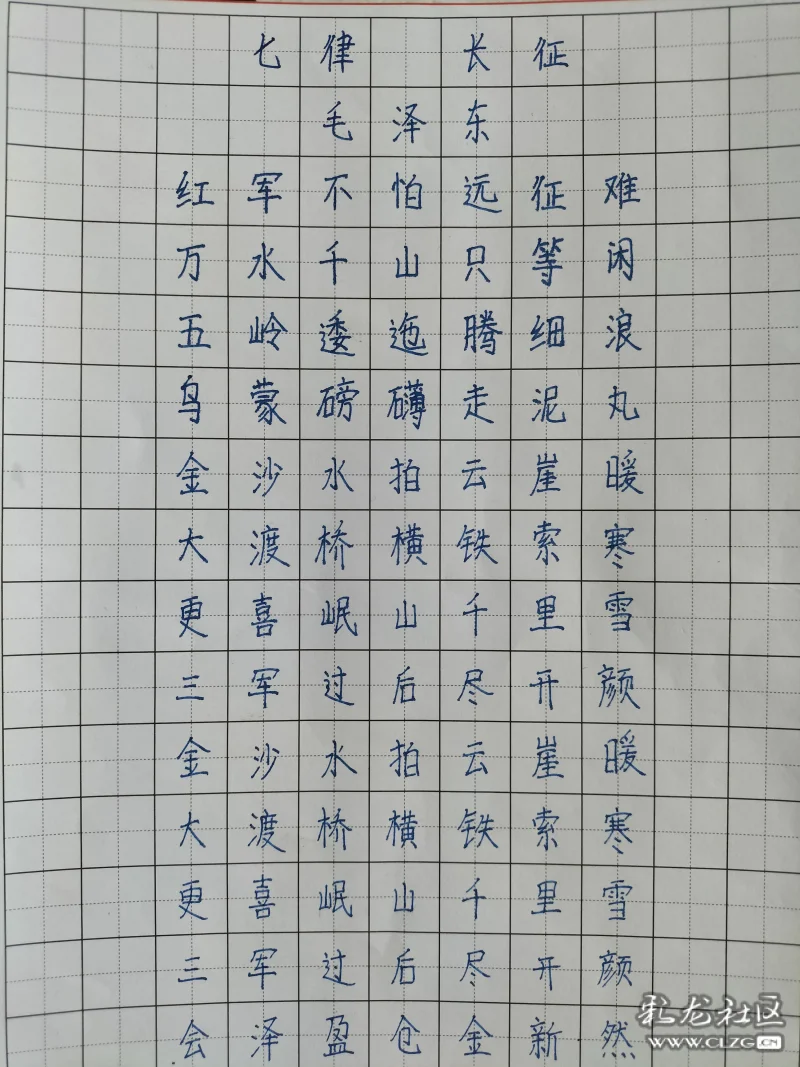 七律 长征
毛泽东
红军不怕远征难
万水千山只等闲
五岭逶迤腾细浪
乌蒙磅礴走泥丸
金沙水拍云崖暖
大渡桥横铁索寒
更喜岷山千里雪
三军过后尽开颜
金沙水拍云崖暖
大渡桥横铁索寒
更喜岷山千里雪
三军过后尽开颜
会泽盈仓金新然
彩龙社区
WWW.CLZG.CN